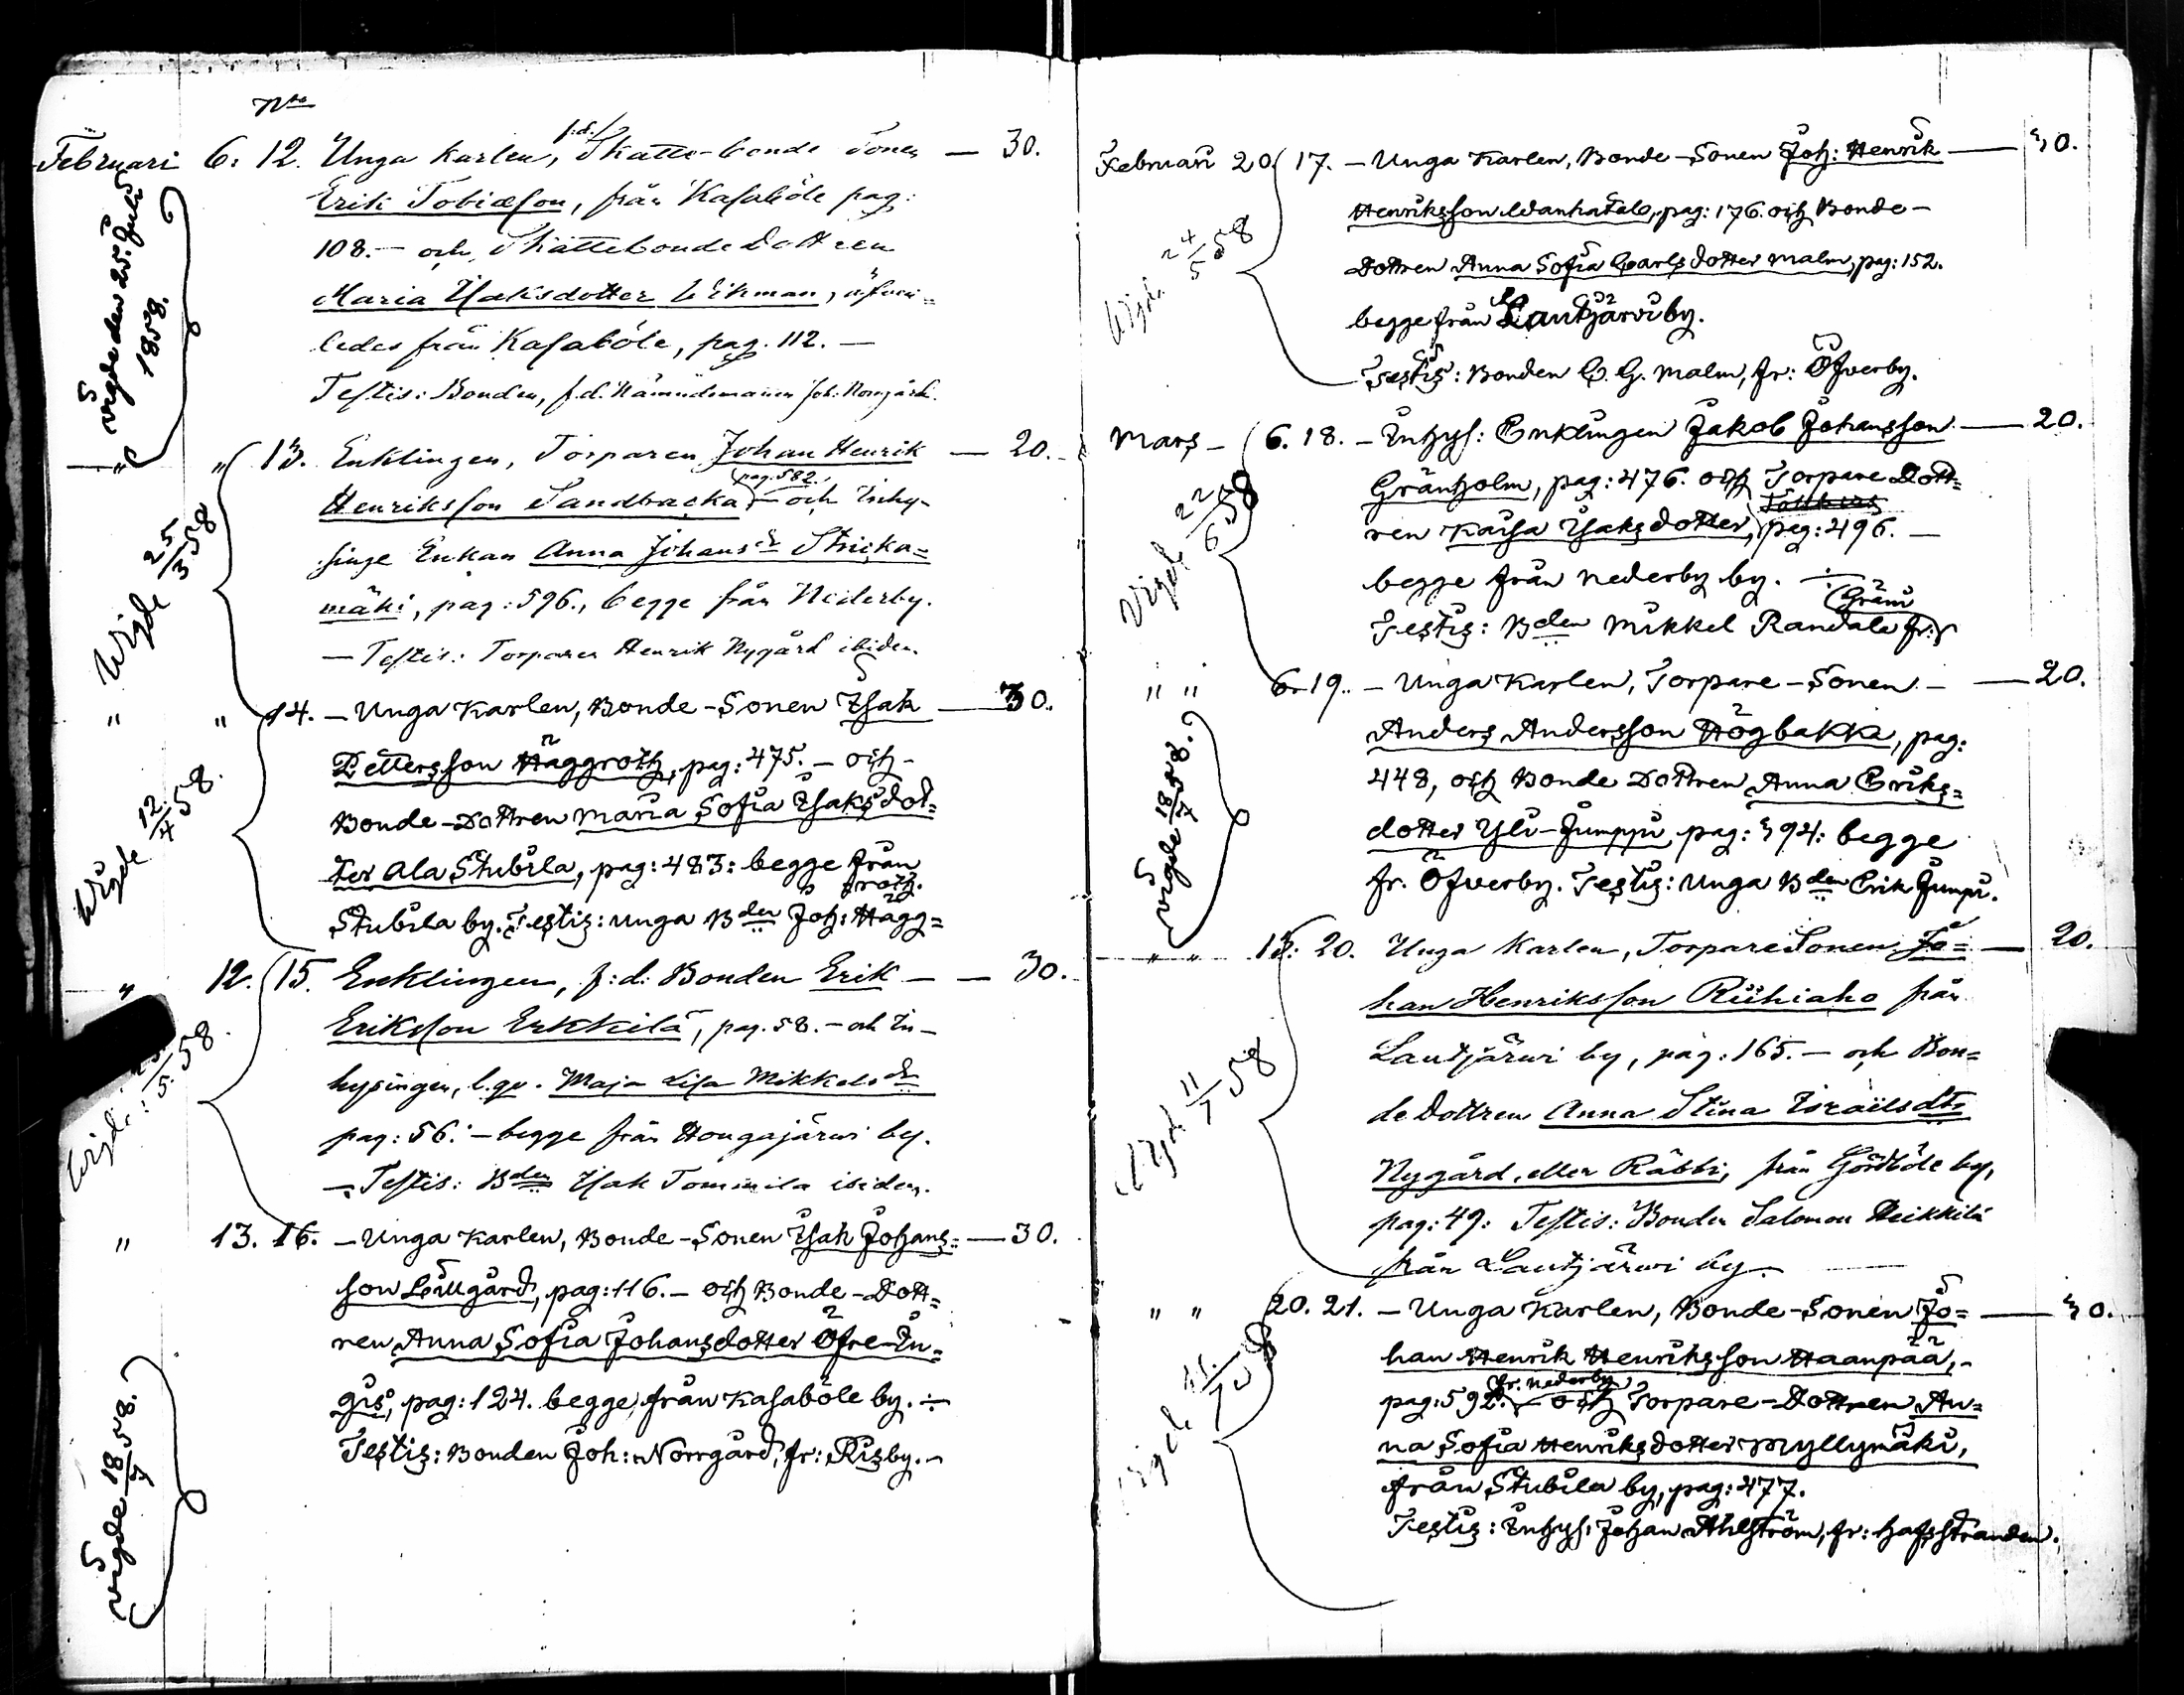 Nro
Februari 6. 12. Unga Karlen, f.d. Skatte-bonde Sonen — 30.
Erik Tobiæson, från Kasaböle pag:
108. — och Skattebonde Dottren
Maria Isaksdotter Wikman, äfven=
ledes från Kasaböle, pag. 112. —
Testis: Bonden, f.d. Nämndemannen Joh. Norrgård.
vigde den 25. Julii 1858.
" " 13. Enklingen, Torparen Johan Henrik — 20.
Henriksson Sandbacka, pag. 582. — och Inhy-
singe Enkan Anna Johansdr Stricka=
mäki, pag: 596., begge från Nederby.
— Testis: Torparen Henrik Nygård ibidem.
Wigde 25/3 58
" " 14. — Unga Karlen, Bonde-Sonen Isak — 30.
Pettersson Häggroth, pag: 475. — och —
Bonde-Dottren Maria Sofia Isaksdot=
ter Ala Stubila, pag: 483: begge från
Stubila by. Testis: unga Bden Joh: Hägg=
roth.
Wigde 12/4 58.
" 12. 15. Enklingen, f:d: Bonden Erik — — 30.
Eriksson Erkkilä, pag. 58. — och In-
hysingen, l.qv. Maja Lisa Mikkelsdr
pag: 56. — begge från Hongajärwi by.
— Testis: Bden Isak Tommila ibidem.
/5. 58.
" 13. 16. — Unga Karlen, Bonde-Sonen Isak Johans= — 30.
son Lillgård, pag: 116. — och Bonde-Dott=
ren Anna Sofia Johansdotter Öfre-In=
gis, pag: 124. begge från Kasaböle by. ÷
Testis: Bonden Joh: Norrgård, fr: Risby. —
vigde 18/7 58.
Februari 20. 17. — Unga Karlen, Bonde-Sonen Joh: Henrik — 30.
Henriksson Wanhatalo, pag: 176. och Bonde-
Dottren Anna Sofia Carlsdotter Malm, pag: 152.
begge från Lautjärvi by.
Testis: Bonden C. G. Malm, fr: Öfverby.
Wigde 24/5 58
Mars — 6. 18. — Inhys: Enklingen Jakob Johansson — 20.
Gränholm, pag: 476. och Torpare Dott=
ren Kaisa Isaksdotter, pag: 496. —
begge från Nederby by. ÷
Testis: Bden Mikkel Randala fr:
Vigde 22/6 58
" " 6. 19. — Unga Karlen, Torpare-Sonen — — 20.
Anders Andersson Högbakka, pag:
448, och Bonde Dottren Anna Eriks=
dotter Yli-Jumppi pag: 394: begge
fr. Öfverby. Testis: Unga Bden Erik Jumpi.
vigde 18/7 58.
" " 13. 20. Unga Karlen, TorpareSonen Jo= — 20.
han Henriksson Riihiaho från
Lautjärwi by, pag: 165. — och Bon=
de Dottren Anna Stina Israëlsdtr
Nygård, eller Räbbi, från Gördböle by,
pag: 49: Testis: Bonden Salomon Heikkilä
från Lautjärwi by. —
11/7 58
" " 20. 21. — Unga Karlen, Bonde-Sonen Jo= — 30.
han Henrik Henriksson Haanpää, —
pag: 592. fr. Nederby — och Torpare-Dottren An=
na Sofia Henriksdotter Myllymäki,
från Stubila by, pag: 477.
Testis: Inhys: Johan Ahlström, fr: Hafsstranden.